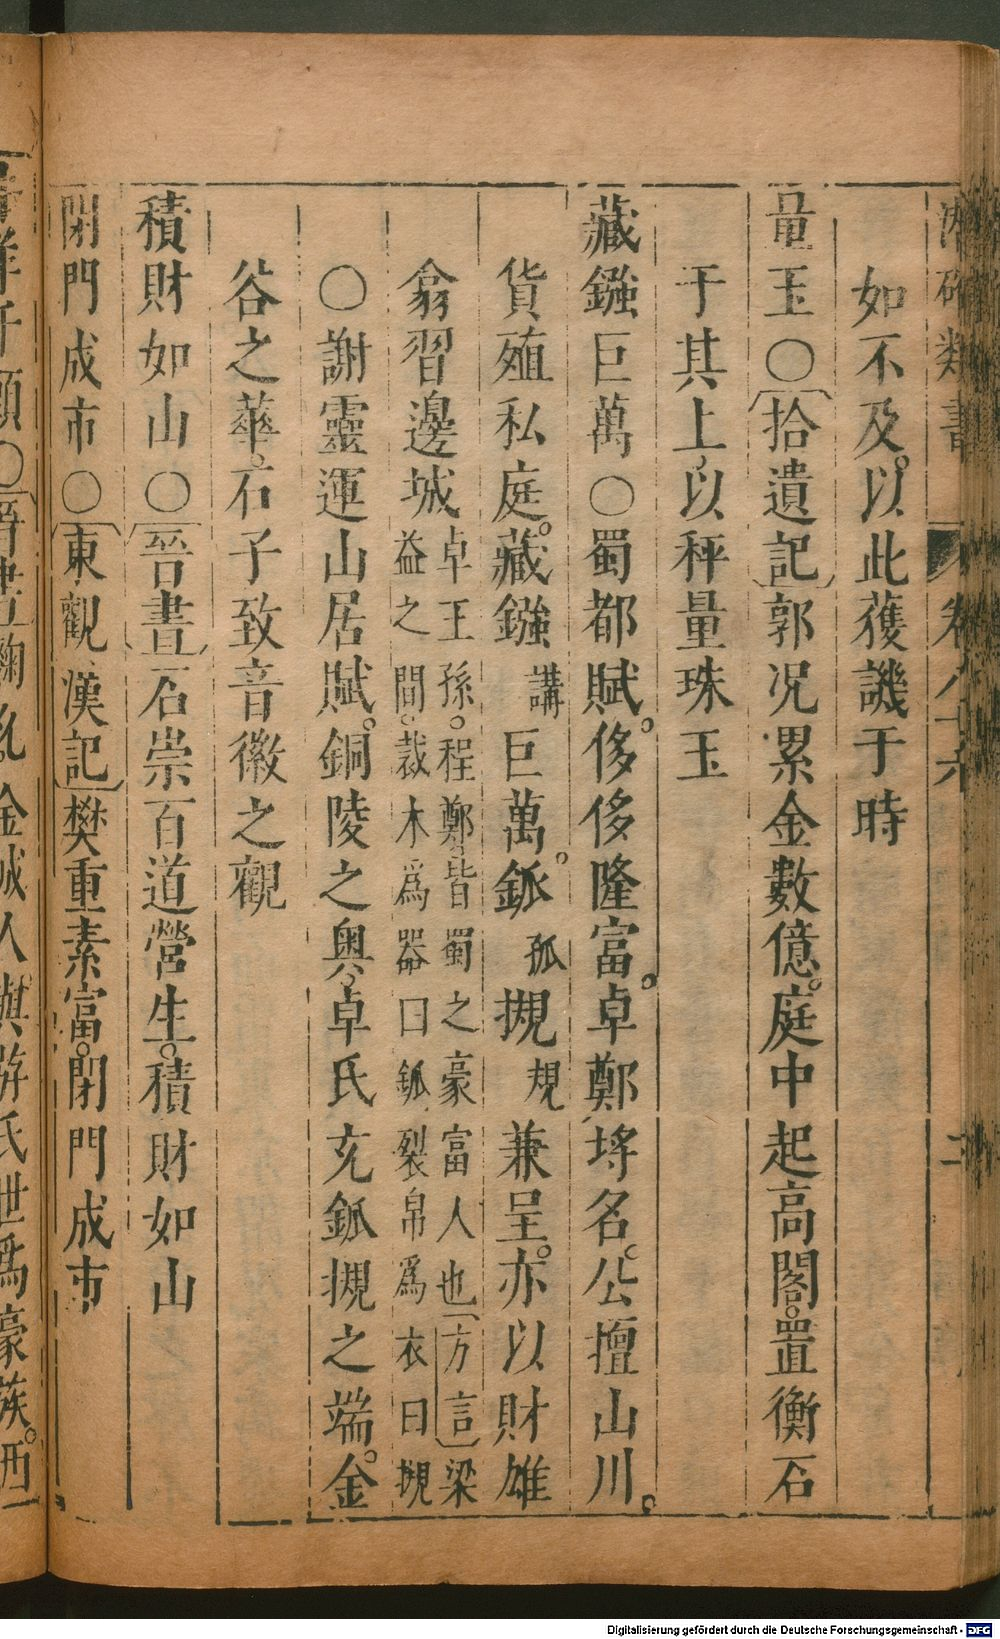 類書 卷八十六 二
如不及以此獲譏于時
量玉○拾遺記郭况累金數億庭中起高閣置衡石
于其上以秤量珠玉
藏鏹巨萬○蜀都賦侈侈隆富卓鄭埒名公擅山川
貨殖私庭藏鏹講巨萬鈲孤摫規兼呈亦以財雄
翕習邊城卓王孫程鄭皆蜀之豪富人也方言梁
益之間裁木爲器曰鈲裂帛爲衣曰摫
○謝靈運山居賦銅陵之奥卓氏充鈲摫之端金
谷之華石子致音徽之觀
積財如山○晉書石崇百道營生積財如山
閉門成市○東觀漢記樊重素富閉門成市
千頭○晉書麴允金城人與游氏世爲豪族西
Digitalisierung gefördert durch die Deutsche Forschungsgemeinschaft - DFG